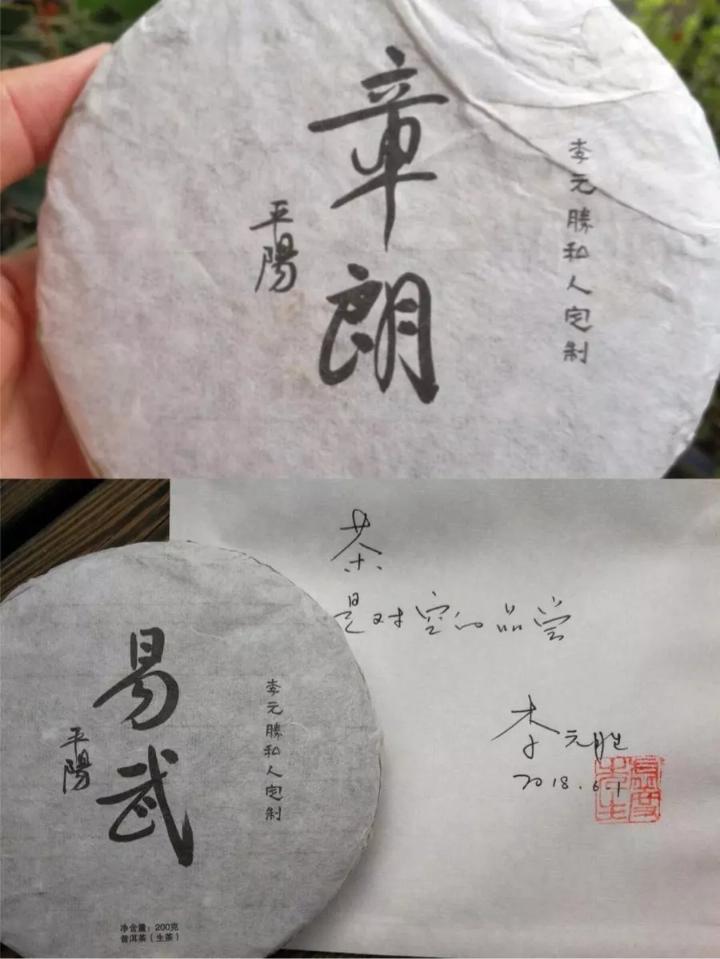 章朗
平陽
李元勝私人定制
易武
平陽
李元勝私人定制
净含量：200克
普洱茶（生茶）
茶
是对空的品尝
李元胜
2018.6.1